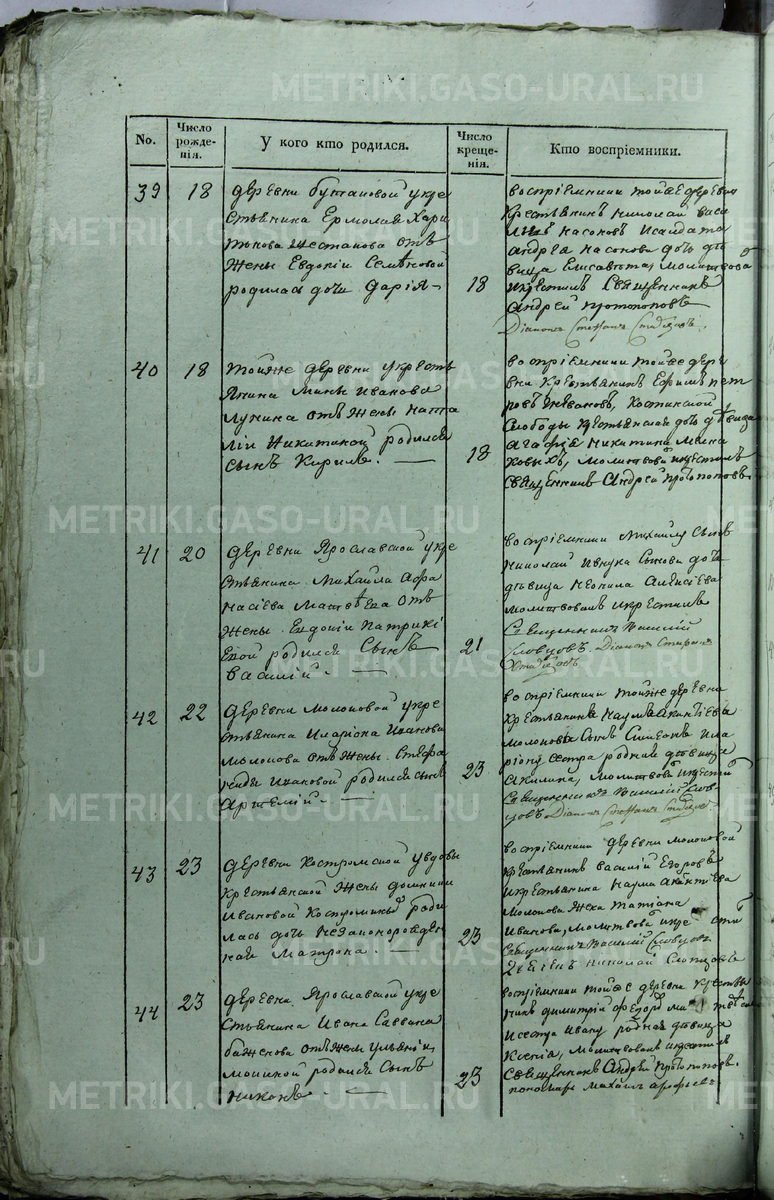 METRIKI.GASO-URAL.RU
No.
Число рожде-нія.
У кого кто родился.
Число креще-нія.
Кто воспріемники.
39
18
деревни Бутановой у кре
стьянина Ермолая Хари
тонова Жестанова отъ
жены Евдокіи Семѣновой
родилась дочь Дарія
18
воспріемники той же деревни
крестьянинъ Николай Васи
Насоновъ и солдата
Андрея Насонова дочь дѣ
вица Елисавета, молитвовалъ
и крестилъ Священникъ
Андрей Протопоповъ
Діаконъ Стефанъ
40
18
той же деревни у кресть
янина Мины Иванова
Лунина отъ жены Ната
ліи Никитиной родился
сынъ Кирилъ.
18
воспріемники той же дерев
ни крестьянинъ Ефимъ Пет
ровъ Костинской
Слободы крестьянская дочь дѣвица
Агафія Никитина
молитвовалъ и крестилъ
Священникъ Андрей Протопоповъ
41
20
деревни Ярославской у кре
стьянина Михайла Афа
насіева Матвѣева отъ
жены Евдокіи Патрикі
евой родился сынъ
Василій.
21
воспріемники Михайлу сынъ
Николай и внука Сысова дочь
дѣвица Неонила Алексіева
молитвовалъ и крестилъ
Священникъ Василій
Словцовъ. Діаконъ Стефанъ
42
22
деревни Молоковой у кре
стьянина Иларіона Иванова
Молокова отъ жены Стефа
ниды Ивановой родился сынъ
Артемій.
23
воспріемники той же деревни
крестьянина Наума Акинтіева
Молокова сынъ Симеонъ и Ила
ріону сестра родная дѣвица
Акилина, молитвовалъ и крестилъ
Священникъ Василій Слов
цовъ Діаконъ Стефанъ
43
23
деревни Костромской у вдовы
крестьянской жены Домники
Ивановой Костроминой роди
лась дочь незаконорожден
ная Матрона.
23
воспріемники деревни Молоковой
крестьянинъ Василій Егоровъ
и крестьянина Наума Акинтіева
Молокова жена Татіана
Иванова, молитвовалъ и крестилъ
Священникъ Василій Словцовъ
Николай Слопцовъ
44
23
деревни Ярославской у кре
стьянина Ивана Саввина
Баженова отъ жены Ульяніи
родился сынъ
Никонъ.
23
воспріемники той же деревни крестья
нинъ Димитрій Федоровъ
и сестра Ивану родная дѣвица
Ксенія, молитвовалъ и крестилъ
Священникъ Андрей Протопоповъ.
пономарь Михаилъ